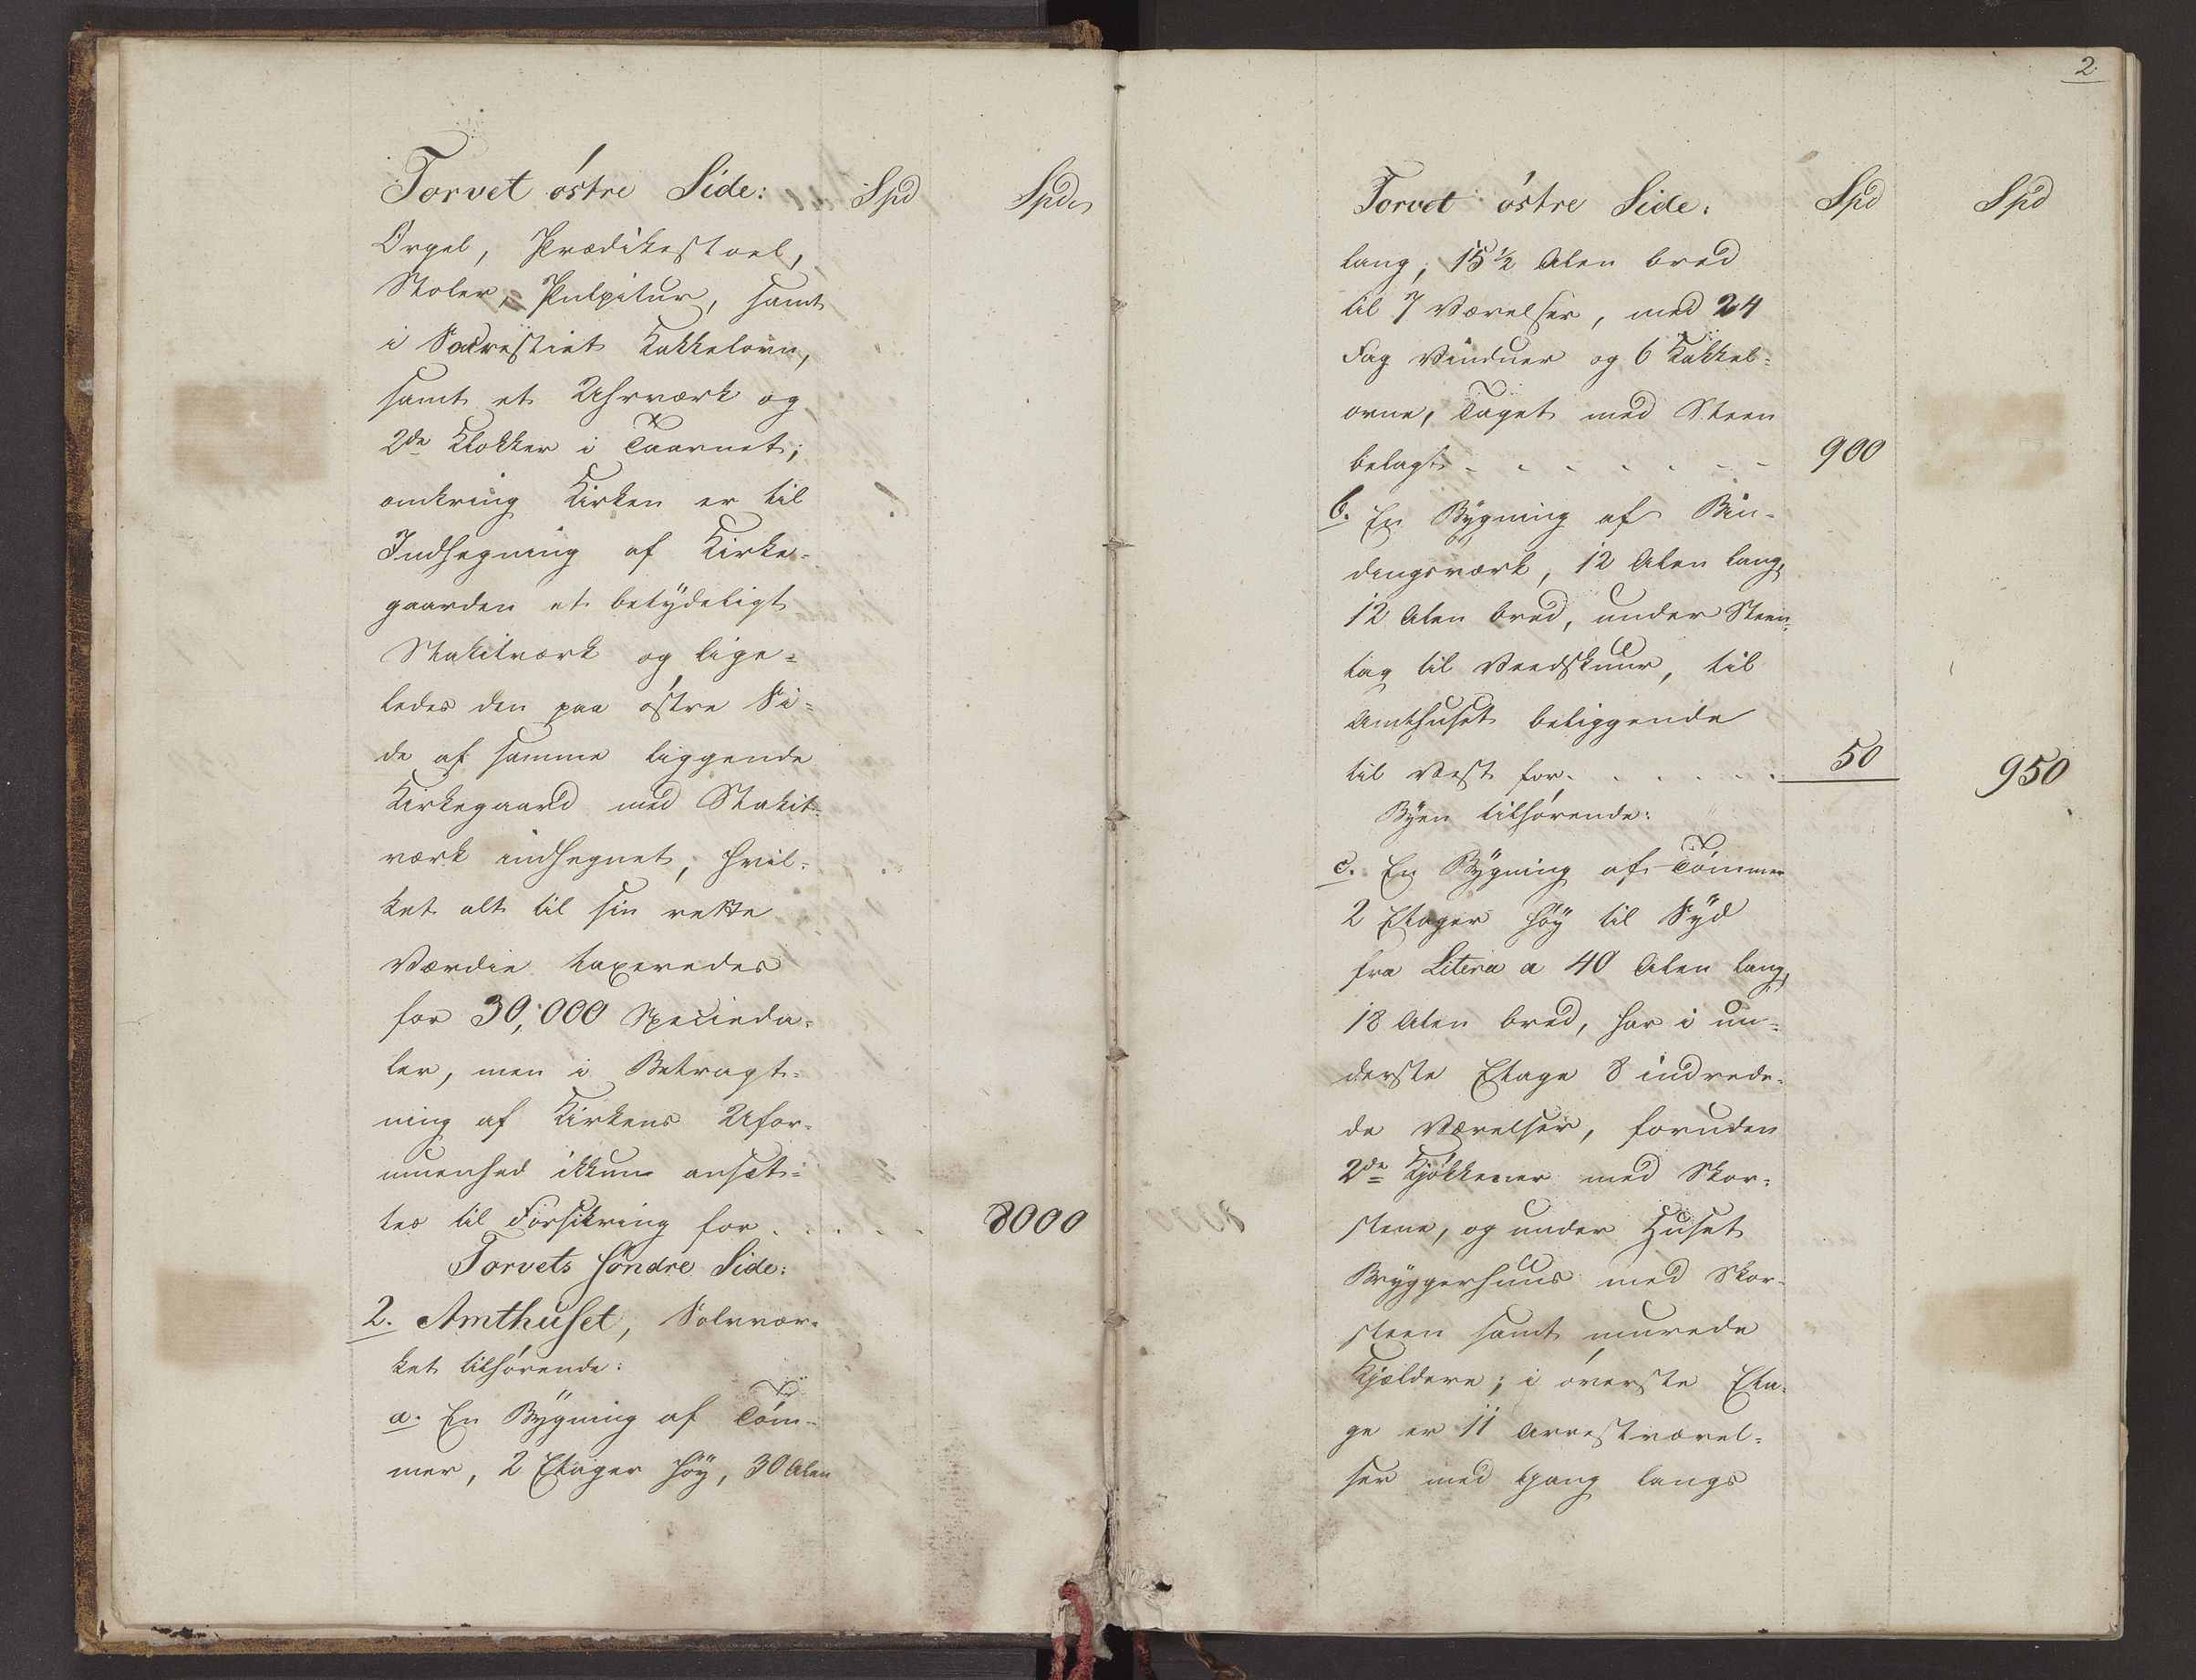 Torvet östre Side: Spd Spd
Orgel, Prædikestoel,
Stoler, Pulpitur, samt
i Sacrestiet Kakkelovn,
samt et Uhrværk og
2de Klokker i Taarnet;
omkring Kirken er til
Indhegning af Kirke-
gaarden et betydeligt
Stakitværk og lige-
ledes den paa östre Si-
de af samme liggende
Kirkegaard med Stakit-
værk indhegnet, hvil-
ket alt til sin rette
Værdie taxeredes
for 30,000 Specieda-
ler, men i Betragt-
ning af Kirkens Ufor-
muenhed ikkun ansæt-
tes til Forsikring for . . . . 8000
Torvets söndre Side:
2. Amthuset, Sölvvær-
ket tilhörende:
a. En Bygning af Töm-
mer, 2 Etager höy, 30 Alen
2
Torvet östre Side: Spd Spd
lang, 15 1/2 Alen bred
til 7 Værelser, med 24
Fag Vinduer og 6 Kakkel-
ovne, Taget med Steen
belagt - - - - - - - 900
b. En Bygning af Bin-
dingsværk, 12 Alen lang,
12 Alen bred, under Steen-
tag til Veedskuur, til
Amthuset beliggende
til Vest for . . . . . . 50 950
Byen tilhörende:
c. En Bygning af Tömmer
2 Etager höy til Syd
fra Litera a 40 Alen lang,
18 Alen bred, har i un-
derste Etage 8 indrede-
de Værelser, foruden
2de Kjökkener med Skor-
stene, og under Huset
Bryggerhuus med Skor-
steen samt murede
Kjeldere; i överste Eta-
ge er 11 Arrestværel-
ser med Gang langs